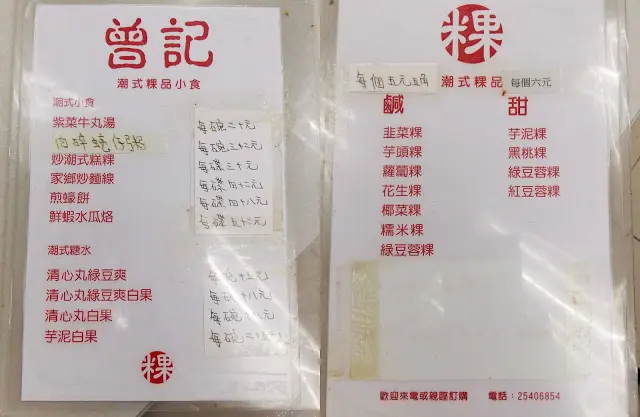 曾記
潮式粿品小食
潮式小食
紫菜牛丸湯 每碗二十元
肉碎蠔仔粥 每碗三十二元
炒潮式糕粿 每碟三十元
家鄉炒麵線 每碟四十二元
煎蠔餅 每碟四十八元
鮮蝦水瓜烙 每碟五十二元
潮式糖水
清心丸綠豆爽 每碗十五元
清心丸綠豆爽白果 每碗十八元
清心丸白果 每碗
芋泥白果 每碗二十
粿
粿
每個五元五角 潮式粿品 每個六元
鹹 甜
韭菜粿 芋泥粿
芋頭粿 黑桃粿
蘿蔔粿 綠豆蓉粿
花生粿 紅豆蓉粿
椰菜粿
糯米粿
綠豆蓉粿
歡迎來電或親臨訂購 電話：25406854